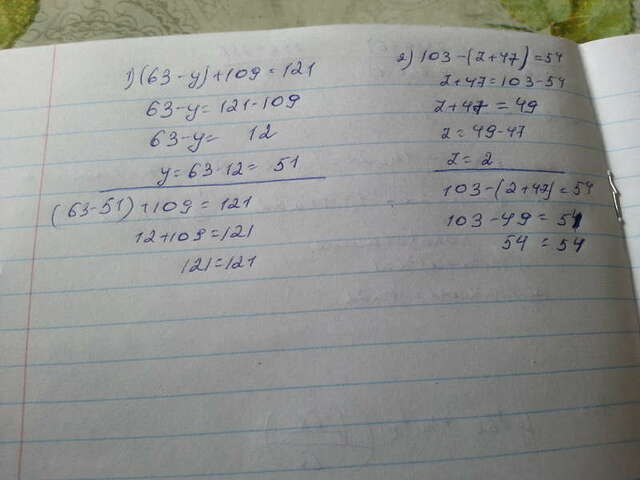 1) (63-y)+109=121
63-y=121-109
63-y= 12
y=63-12= 51
(63-51)+109=121
12+109=121
121=121
2) 103-(z+47)=54
z+47=103-54
z+47=49
z=49-47
z=2
103-(2+47)=54
103-49=54
54=54